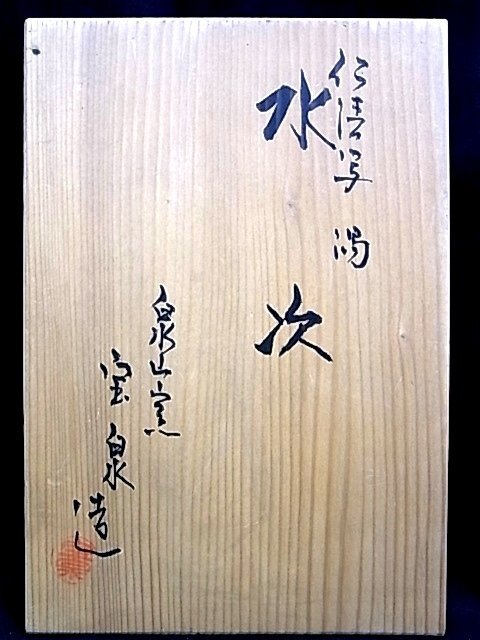 仁清写 渦
水次
泉山窯
宝泉造